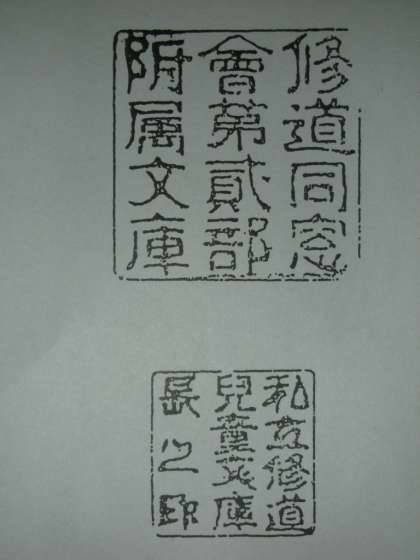 修道同窓
會第貳部
附属文庫
私立修道
兒童文庫
長之印